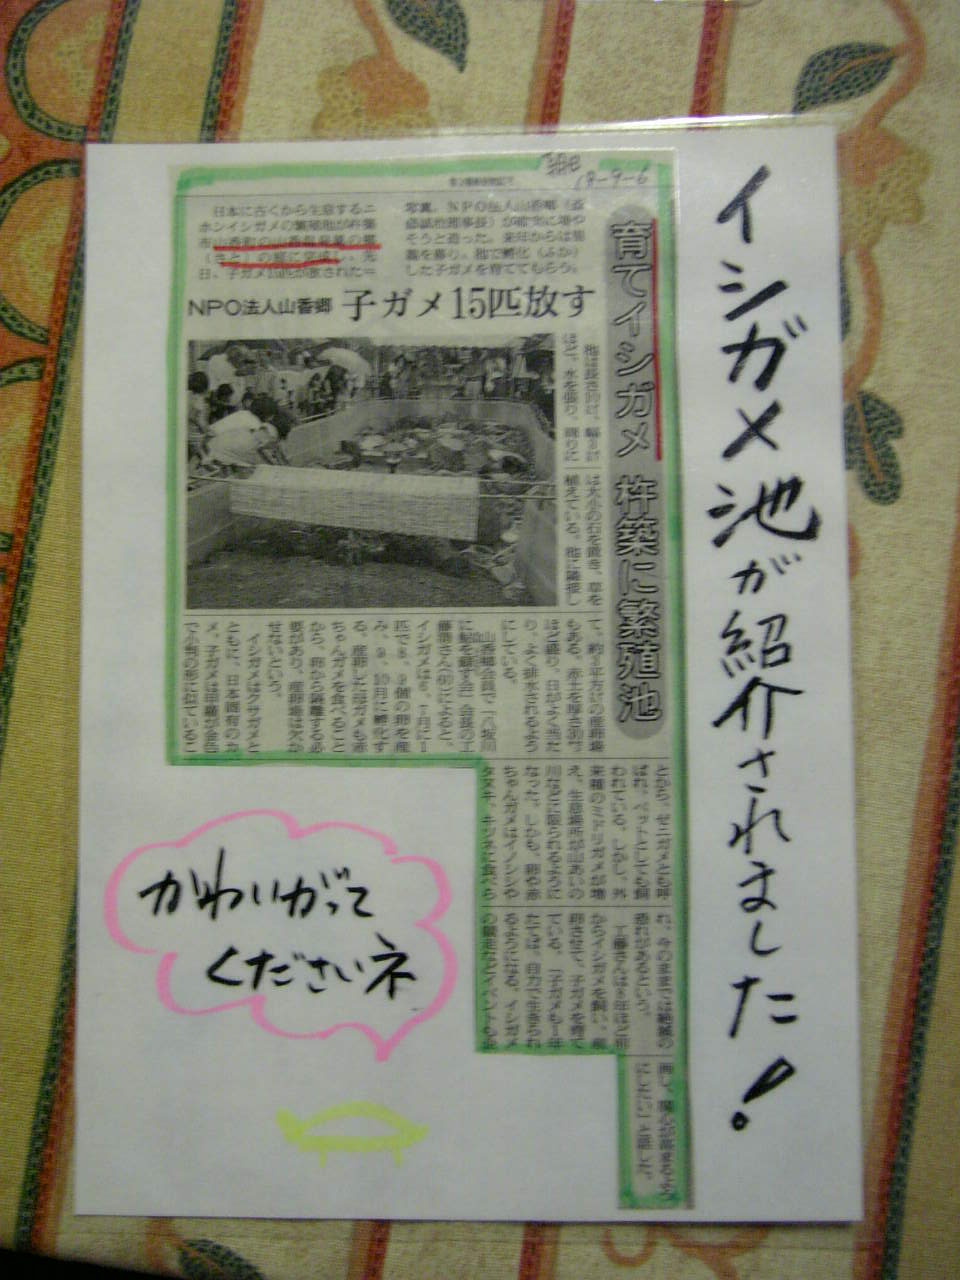 イシガメ池が紹介されました!
18-9-6
育てイシガメ 杵築に繁殖池
NPO法人山香郷 子ガメ15匹放す
日本に古くから生息するニ
ホンイシガメの繁殖池が杵築
写真。NPO法人山香郷(斎
した子ガメを育ててもらう。
ほど。水を張り、周りに
は大小の石を置き、草を
植えている。池に隣接し
て、約3平方㍍の産卵場
もある。赤土を厚さ30㌢
ほど盛り、日がよく当た
り、よく排水されるよう
にしている。
山香郷会員で「八坂川
イシガメは6、7月に1
匹で8、9個の卵を産
み、9、10月に孵化す
る。産卵した母ガメも赤
ちゃんガメを食べること
から、卵から隔離する必
要があり、産卵場は欠か
せないという。
イシガメはクサガメと
ともに、日本固有のカ
メ。子ガメは甲羅が金色
で小判の形に似ているこ
とから、ゼニガメとも呼
ばれ、ペットとしても飼
われている。しかし、外
来種のミドリガメが増
え、生息場所が山あいの
川などに限られるように
なった。しかも、卵や赤
ちゃんガメはイノシシや
タヌキ、キツネに食べら
れ、今のままでは絶滅の
恐れがあるという。
工藤さんは8年ほど前
からイシガメを飼い、産
卵させて、子ガメを育て
ている。「子ガメも1年
たてば、自力で生きられ
るようになる。イシガメ
の競走などイベントも企
画し、関心が高まるよう
にしたい」と話した。
かわいがって
くださいネ